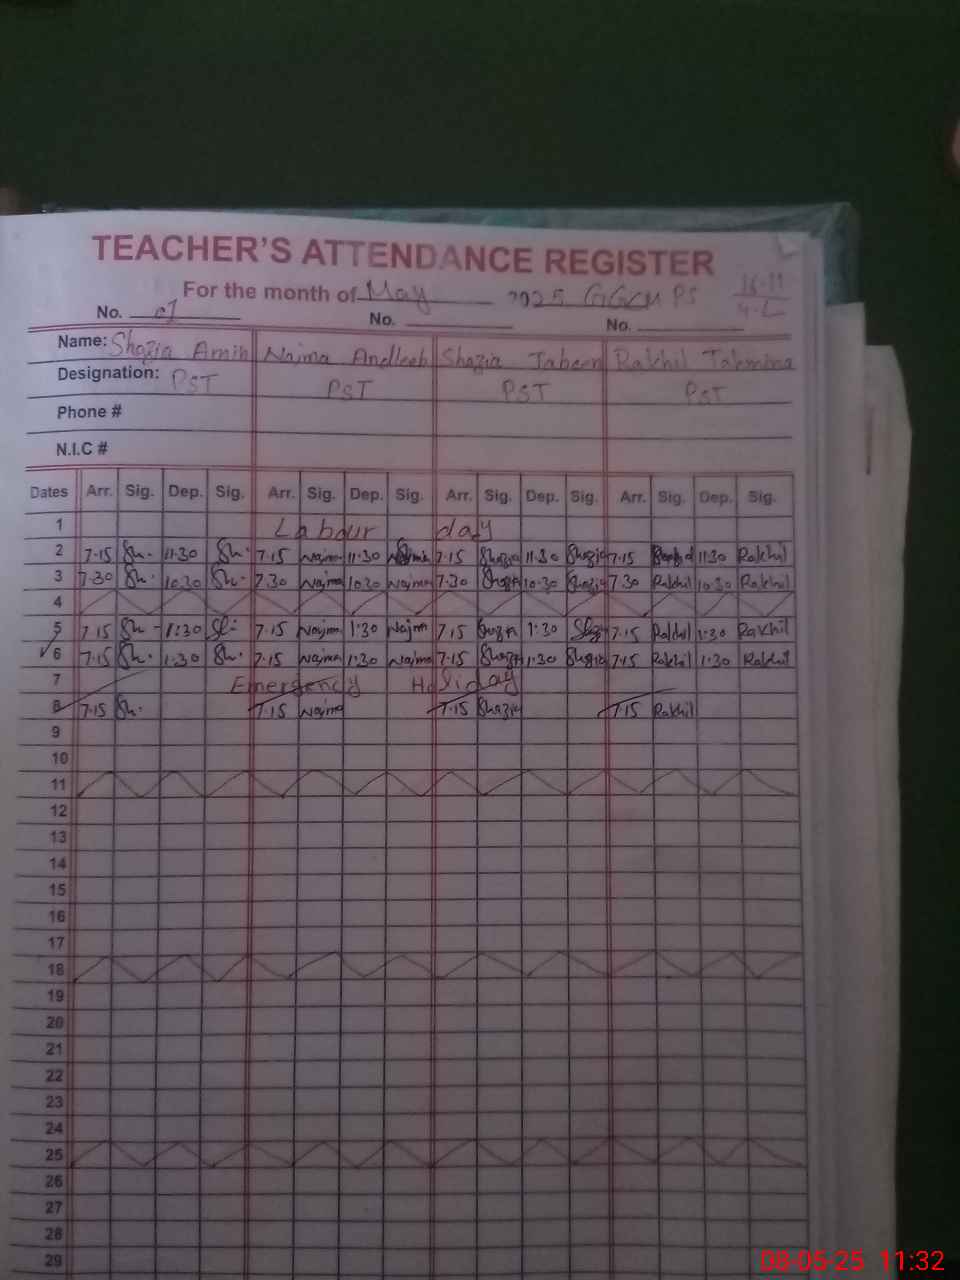 TEACHER'S ATTENDANCE REGISTER
For the month of May 2025 GGCM PS 16-11
4-L
No. 01 No. No.
Name: Shazia Amin Najma Andleeb Shazia Jabeen Rakhil Tahmina
Designation: PST PST PST PST
Phone #
N.I.C #
Dates Arr. Sig. Dep. Sig. Arr. Sig. Dep. Sig. Arr. Sig. Dep. Sig. Arr. Sig. Dep. Sig.
1 Labour day
2 7.15 Sh. 11.30 Sh. 7.15 Najma 11.30 Najma 7.15 Shazia 11.30 Shazia 7.15 11.30 Rakhil
3 7.30 Sh. 10.30 Sh. 7.30 Najma 10.30 Najma 7.30 Shazia 10.30 Shazia 7.30 Rakhil 10.30 Rakhil
4
5 7.15 Sh. 1:30 Sh. 7.15 Najma 1:30 Najma 7.15 Shazia 1:30 Shazia 7.15 Rakhil 1:30 Rakhil
6 7.15 Sh. 1.30 Sh. 7.15 Najma 1.30 Najma 7.15 Shazia 1.30 Shazia 7.15 Rakhil 1.30 Rakhil
7 Emergency Holiday
8 7.15 Sh. 7.15 Najma 7.15 Shazia 7.15 Rakhil
9
10
11
12
13
14
15
16
17
18
19
20
21
22
23
24
25
26
27
28
29
08-05-25 11:32